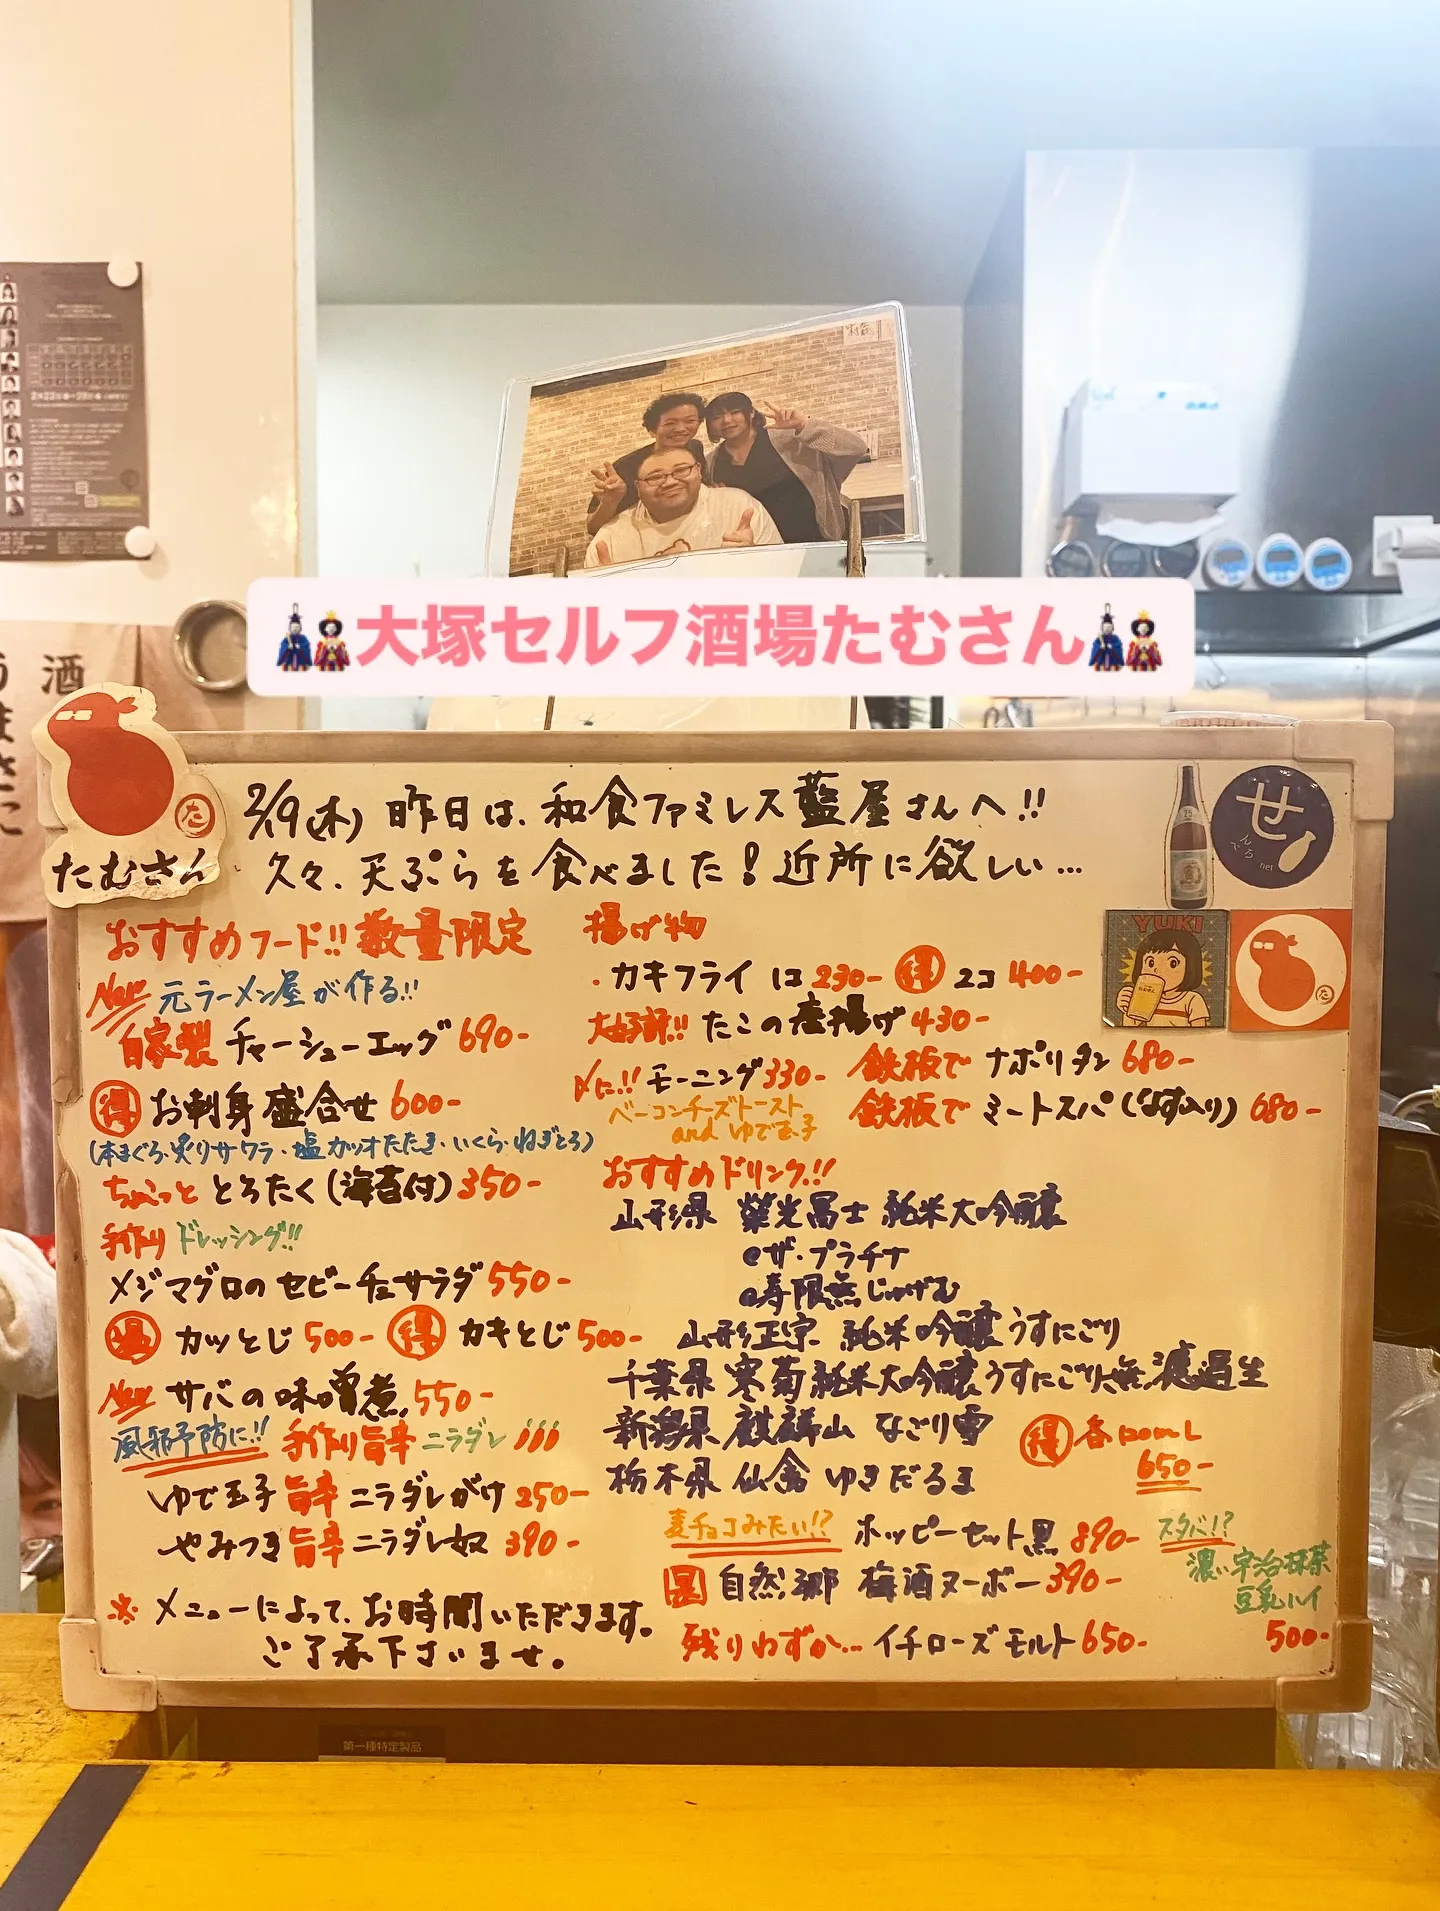 🎎大塚セルフ酒場たむさん🎎
酒
たむさん
た
2/19(木) 昨日は、和食ファミレス藍屋さんへ!!
久々、天ぷらを食べました!近所に欲しい…
せ
んべろ
net
YUKI
おすすめフード!! 数量限定
New 元ラーメン屋が作る!!
自家製 チャーシューエッグ 690-
得 お刺身盛合せ 600-
(本まぐろ・炙りサワラ・塩カツオたたき・いくら・ねぎとろ)
ちょこっと とろたく(海苔付) 350-
手作り ドレッシング!!
メジマグロのセビーチェサラダ 550-
カツとじ 500- 得 カキとじ 500-
New サバの味噌煮 550-
風邪予防に!! 手作り旨辛ニラダレ
ゆで玉子 旨辛ニラダレがけ 250-
やみつき旨辛ニラダレ奴 390-
※ メニューによって、お時間いただきます。
ご了承下さいませ。
揚げ物
・カキフライ 1コ 230- 得 2コ 400-
大好評!! たこの唐揚げ 430-
〆に!! モーニング 330-
ベーコンチーズトースト
and ゆで玉子
鉄板で ナポリタン 680-
鉄板で ミートスパ(なす入り) 680-
おすすめドリンク!!
山形県 榮光冨士 純米大吟醸
@ザ・プラチナ
@寿限無じゅげむ
山形正宗 純米吟醸うすにごり
千葉県 寒菊純米大吟醸うすにごり無濾過生
新潟県 麒麟山 なごり雪
栃木県 仙禽 ゆきだるま
得 各120mL
650-
麦チョコみたい!? ホッピーセット黒 890-
自然郷 梅酒ヌーボー 390-
残りわずか… イチローズモルト 650-
スタバ!?
濃い宇治抹茶
豆乳ハイ
500-
第一種特定製品